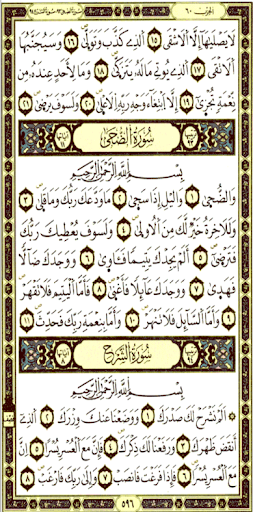 الحزب ٦٠
لَا يَصْلَىٰهَآ إِلَّا ٱلْأَشْقَى ١٥ ٱلَّذِى كَذَّبَ وَتَوَلَّىٰ ١٦ وَسَيُجَنَّبُهَا
ٱلْأَتْقَى ١٧ ٱلَّذِى يُؤْتِى مَالَهُۥ يَتَزَكَّىٰ ١٨ وَمَا لِأَحَدٍ عِندَهُۥ مِن
نِّعْمَةٍ تُجْزَىٰٓ ١٩ إِلَّا ٱبْتِغَآءَ وَجْهِ رَبِّهِ ٱلْأَعْلَىٰ ٢٠ وَلَسَوْفَ يَرْضَىٰ ٢١
سُورَةُ الضُّحَىٰ
بِسْمِ ٱللَّهِ ٱلرَّحْمَٰنِ ٱلرَّحِيمِ
وَٱلضُّحَىٰ ١ وَٱلَّيْلِ إِذَا سَجَىٰ ٢ مَا وَدَّعَكَ رَبُّكَ وَمَا قَلَىٰ ٣
وَلَلْءَاخِرَةُ خَيْرٌ لَّكَ مِنَ ٱلْأُولَىٰ ٤ وَلَسَوْفَ يُعْطِيكَ رَبُّكَ
فَتَرْضَىٰٓ ٥ أَلَمْ يَجِدْكَ يَتِيمًا فَـَٔاوَىٰ ٦ وَوَجَدَكَ ضَآلًّا
فَهَدَىٰ ٧ وَوَجَدَكَ عَآئِلًا فَأَغْنَىٰ ٨ فَأَمَّا ٱلْيَتِيمَ فَلَا تَقْهَرْ
٩ وَأَمَّا ٱلسَّآئِلَ فَلَا تَنْهَرْ ١٠ وَأَمَّا بِنِعْمَةِ رَبِّكَ فَحَدِّثْ ١١
سُورَةُ الشَّرْحِ
بِسْمِ ٱللَّهِ ٱلرَّحْمَٰنِ ٱلرَّحِيمِ
أَلَمْ نَشْرَحْ لَكَ صَدْرَكَ ١ وَوَضَعْنَا عَنكَ وِزْرَكَ ٢ ٱلَّذِىٓ
أَنقَضَ ظَهْرَكَ ٣ وَرَفَعْنَا لَكَ ذِكْرَكَ ٤ فَإِنَّ مَعَ ٱلْعُسْرِ يُسْرًا ٥ إِنَّ
مَعَ ٱلْعُسْرِ يُسْرًا ٦ فَإِذَا فَرَغْتَ فَٱنصَبْ ٧ وَإِلَىٰ رَبِّكَ فَٱرْغَب ٨
٥٩٦